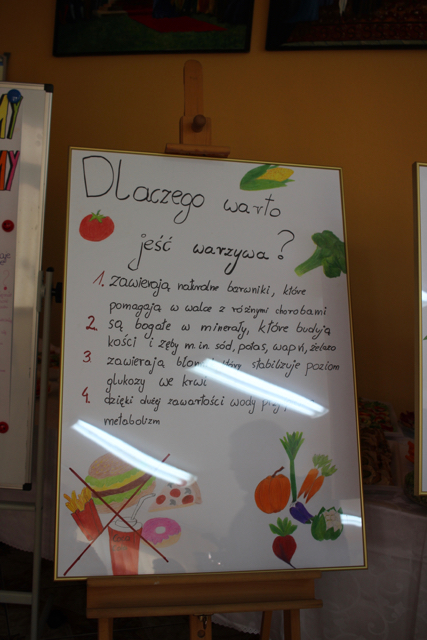 Dlaczego warto
jeść warzywa?
1. zawierają naturalne barwniki, które
pomagają w walce z różnymi chorobami
2. są bogate w minerały, które budują
kości i zęby m.in. sód, potas, wapń, żelazo
3. zawierają stabilizuje poziom
glukozy we krwi
4. dzięki dużej zawartości wody
metabolizm